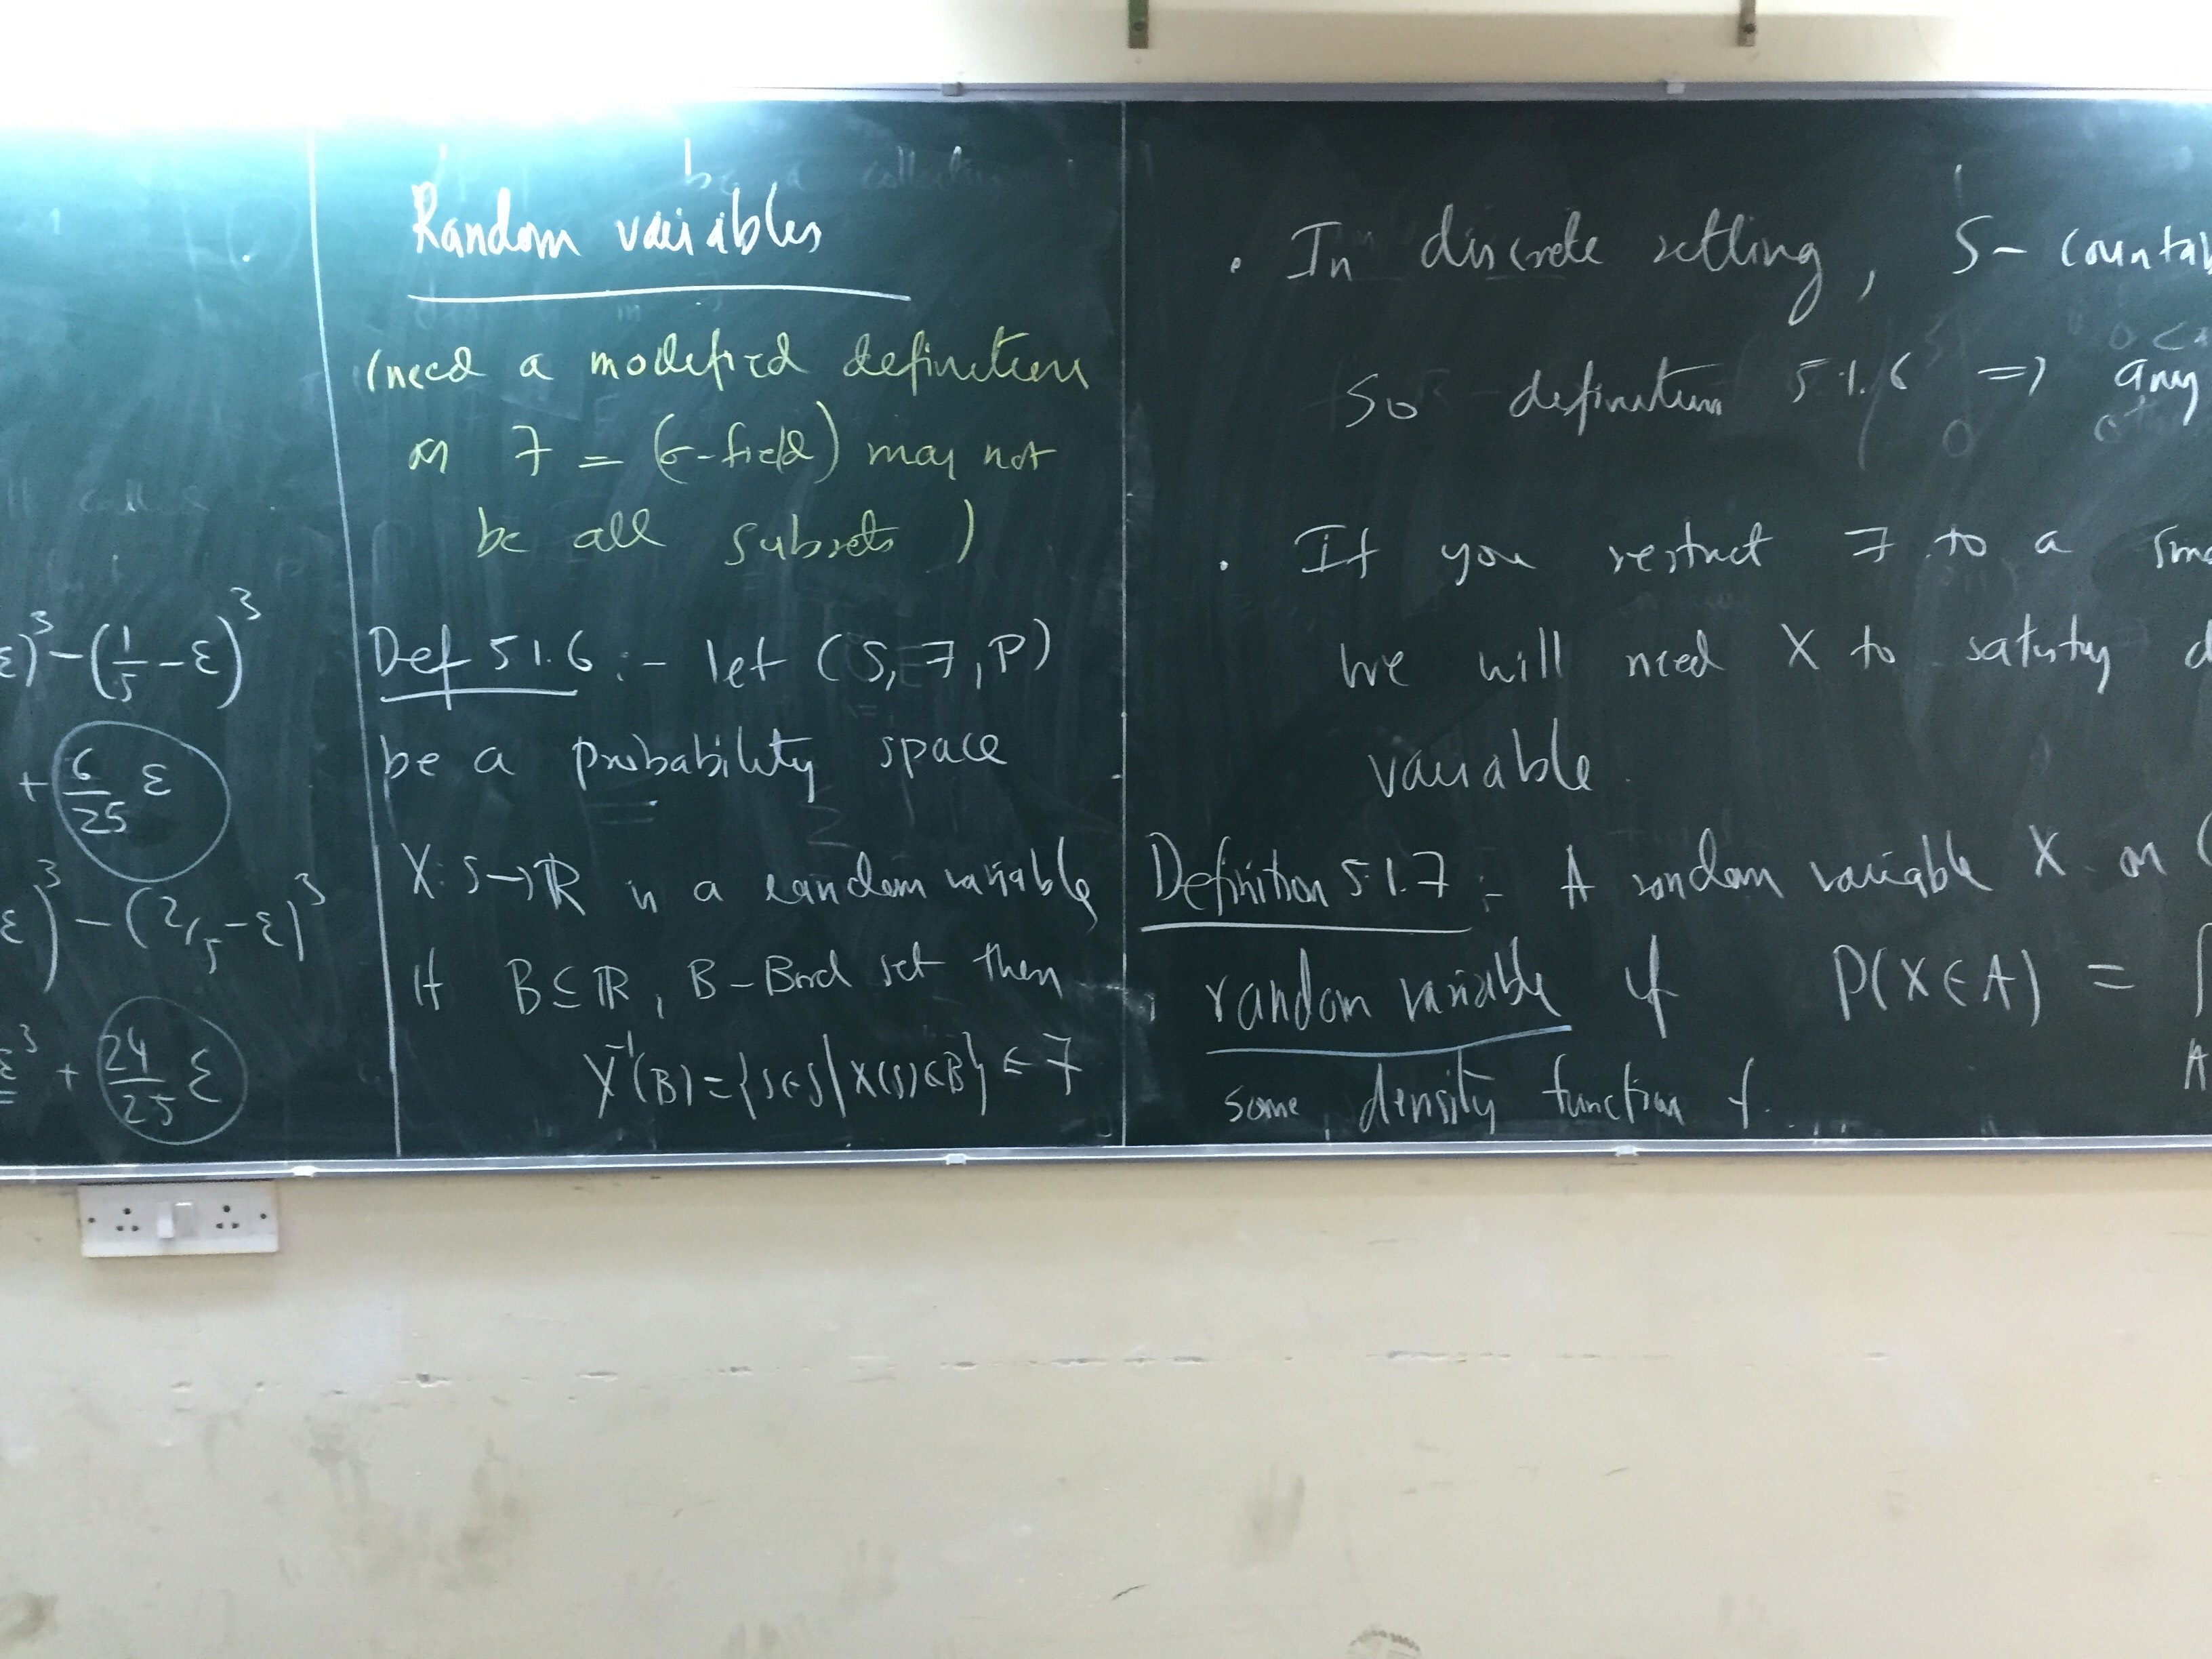 ε)³ - (1/5 - ε)³
+ 6/25 ε
ε)³ - (2/5 - ε)³
ε³ + 24/25 ε
Random variables
(need a modified definition
as ℱ = (σ-field) may not
be all subsets )
Def 5.1.6 :- let (S, ℱ, P)
be a probability space
X: S → ℝ is a random variable
if B ⊆ ℝ, B - Borel set then
X⁻¹(B) = {s ∈ S | X(s) ∈ B} ∈ ℱ
. In discrete setting, S - countab
So definition 5.1.6 => any
. If you restrict ℱ to a sma
we will need X to satisfy d
variable.
Definition 5.1.7 :- A random variable X on (
random variable if P(X ∈ A) = ∫
A
some density function f.